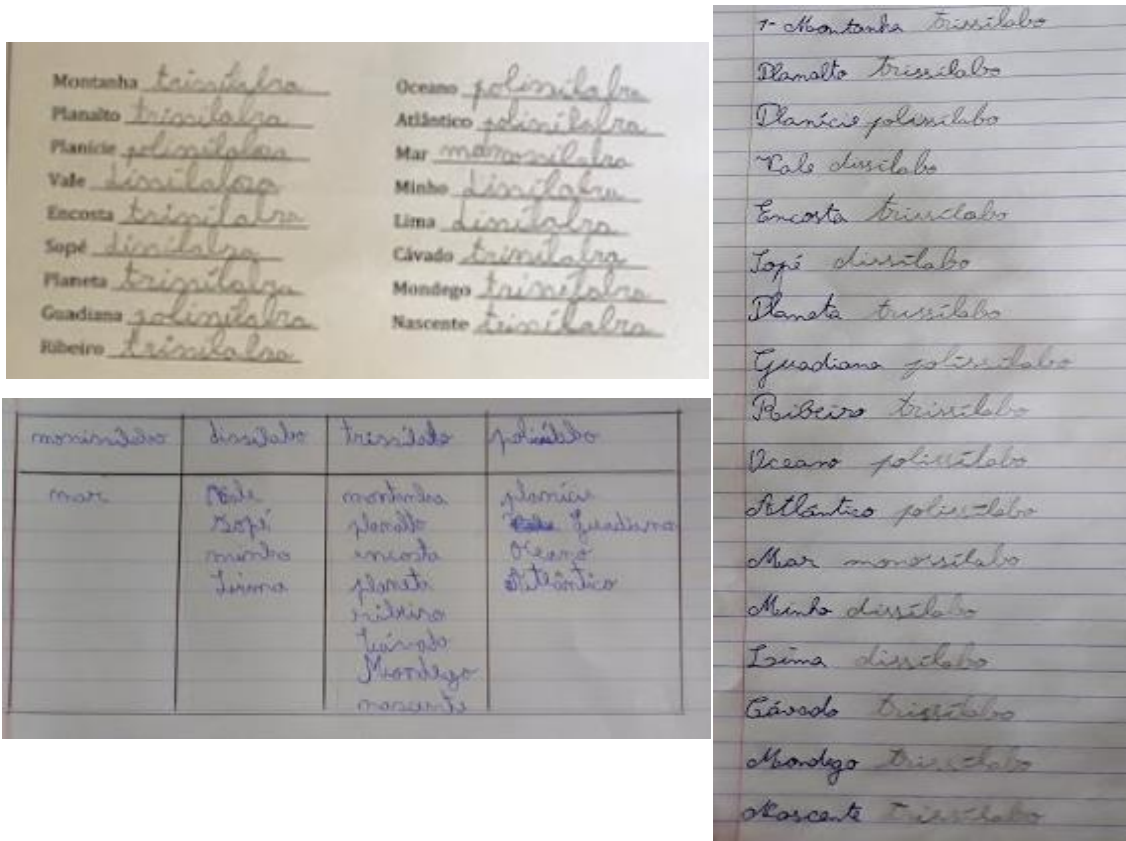 Montanha trissilabra
Planalto trissilabra
Planície polissilabra
Vale dissilabra
Encosta trissilabra
Sopé dissilabra
Planeta trissilabra
Guadiana polissilabra
Ribeiro trissilabra
Oceano polissilabra
Atlântico polissilabra
Mar monossilabra
Minho dissilabra
Lima dissilabra
Cávado trissilabra
Mondego trissilabra
Nascente trissilabra
dissilabo trissílabo
mar Vale montanha planície
Sopé planalto Guadiana
minho encosta Oceano
Lima planeta Atlântico
ribeiro
Cávado
Mondego
nascente
1- Montanha trissílabo
Planalto trissílabo
Planície polissílabo
Vale dissílabo
Encosta trissílabo
Sopé dissílabo
Planeta trissílabo
Guadiana polissílabo
Ribeiro trissílabo
Oceano polissílabo
Atlântico polissílabo
Mar monossílabo
Minho dissílabo
Lima dissílabo
Cávado trissílabo
Mondego trissílabo
Nascente trissílabo